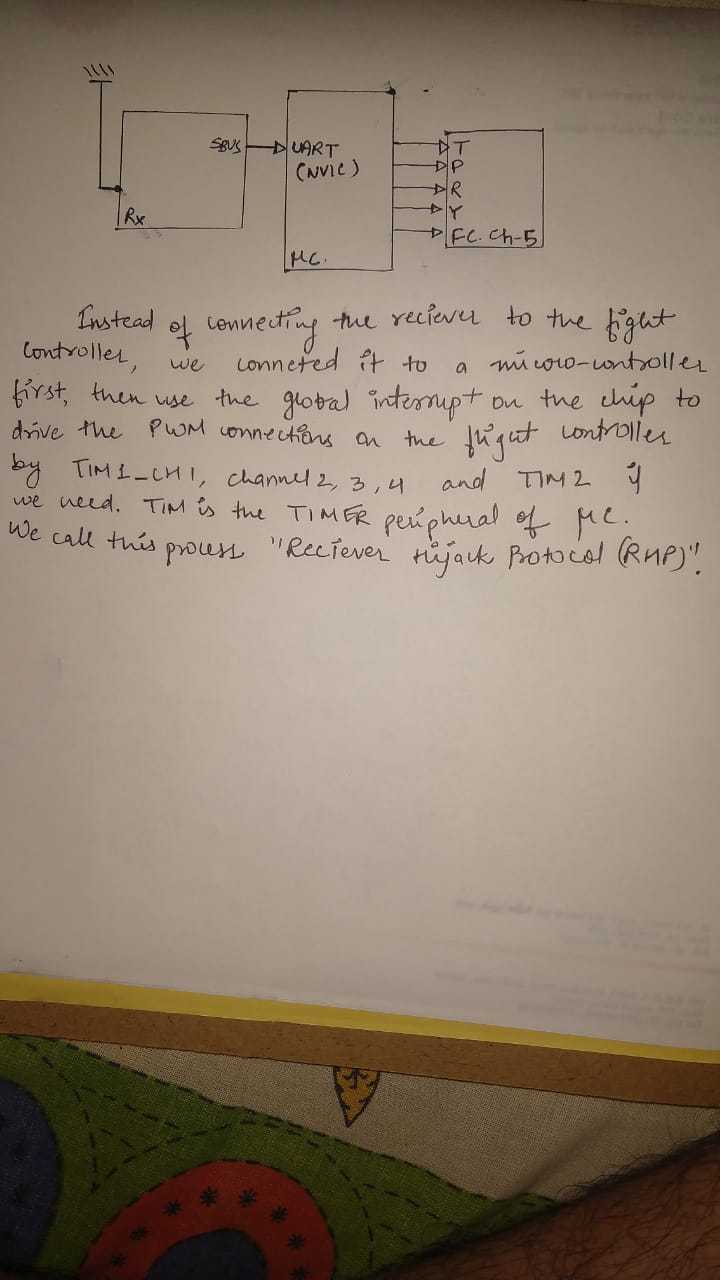 SBUS
UART
(NVIC)
T
P
R
Y
FC. Ch-5
Rx
μC.
Instead of connecting the reciever to the fight
controller, we conneted it to a micoro-controller
first, then use the global interrupt on the chip to
drive the PWM connections on the flight controller
by TIM1_CH1, channel 2, 3, 4 and TIM2 if
we need. TIM is the TIMER peripheral of μC.
We call this process "Reciever Hijack Protocol (RHP)"!